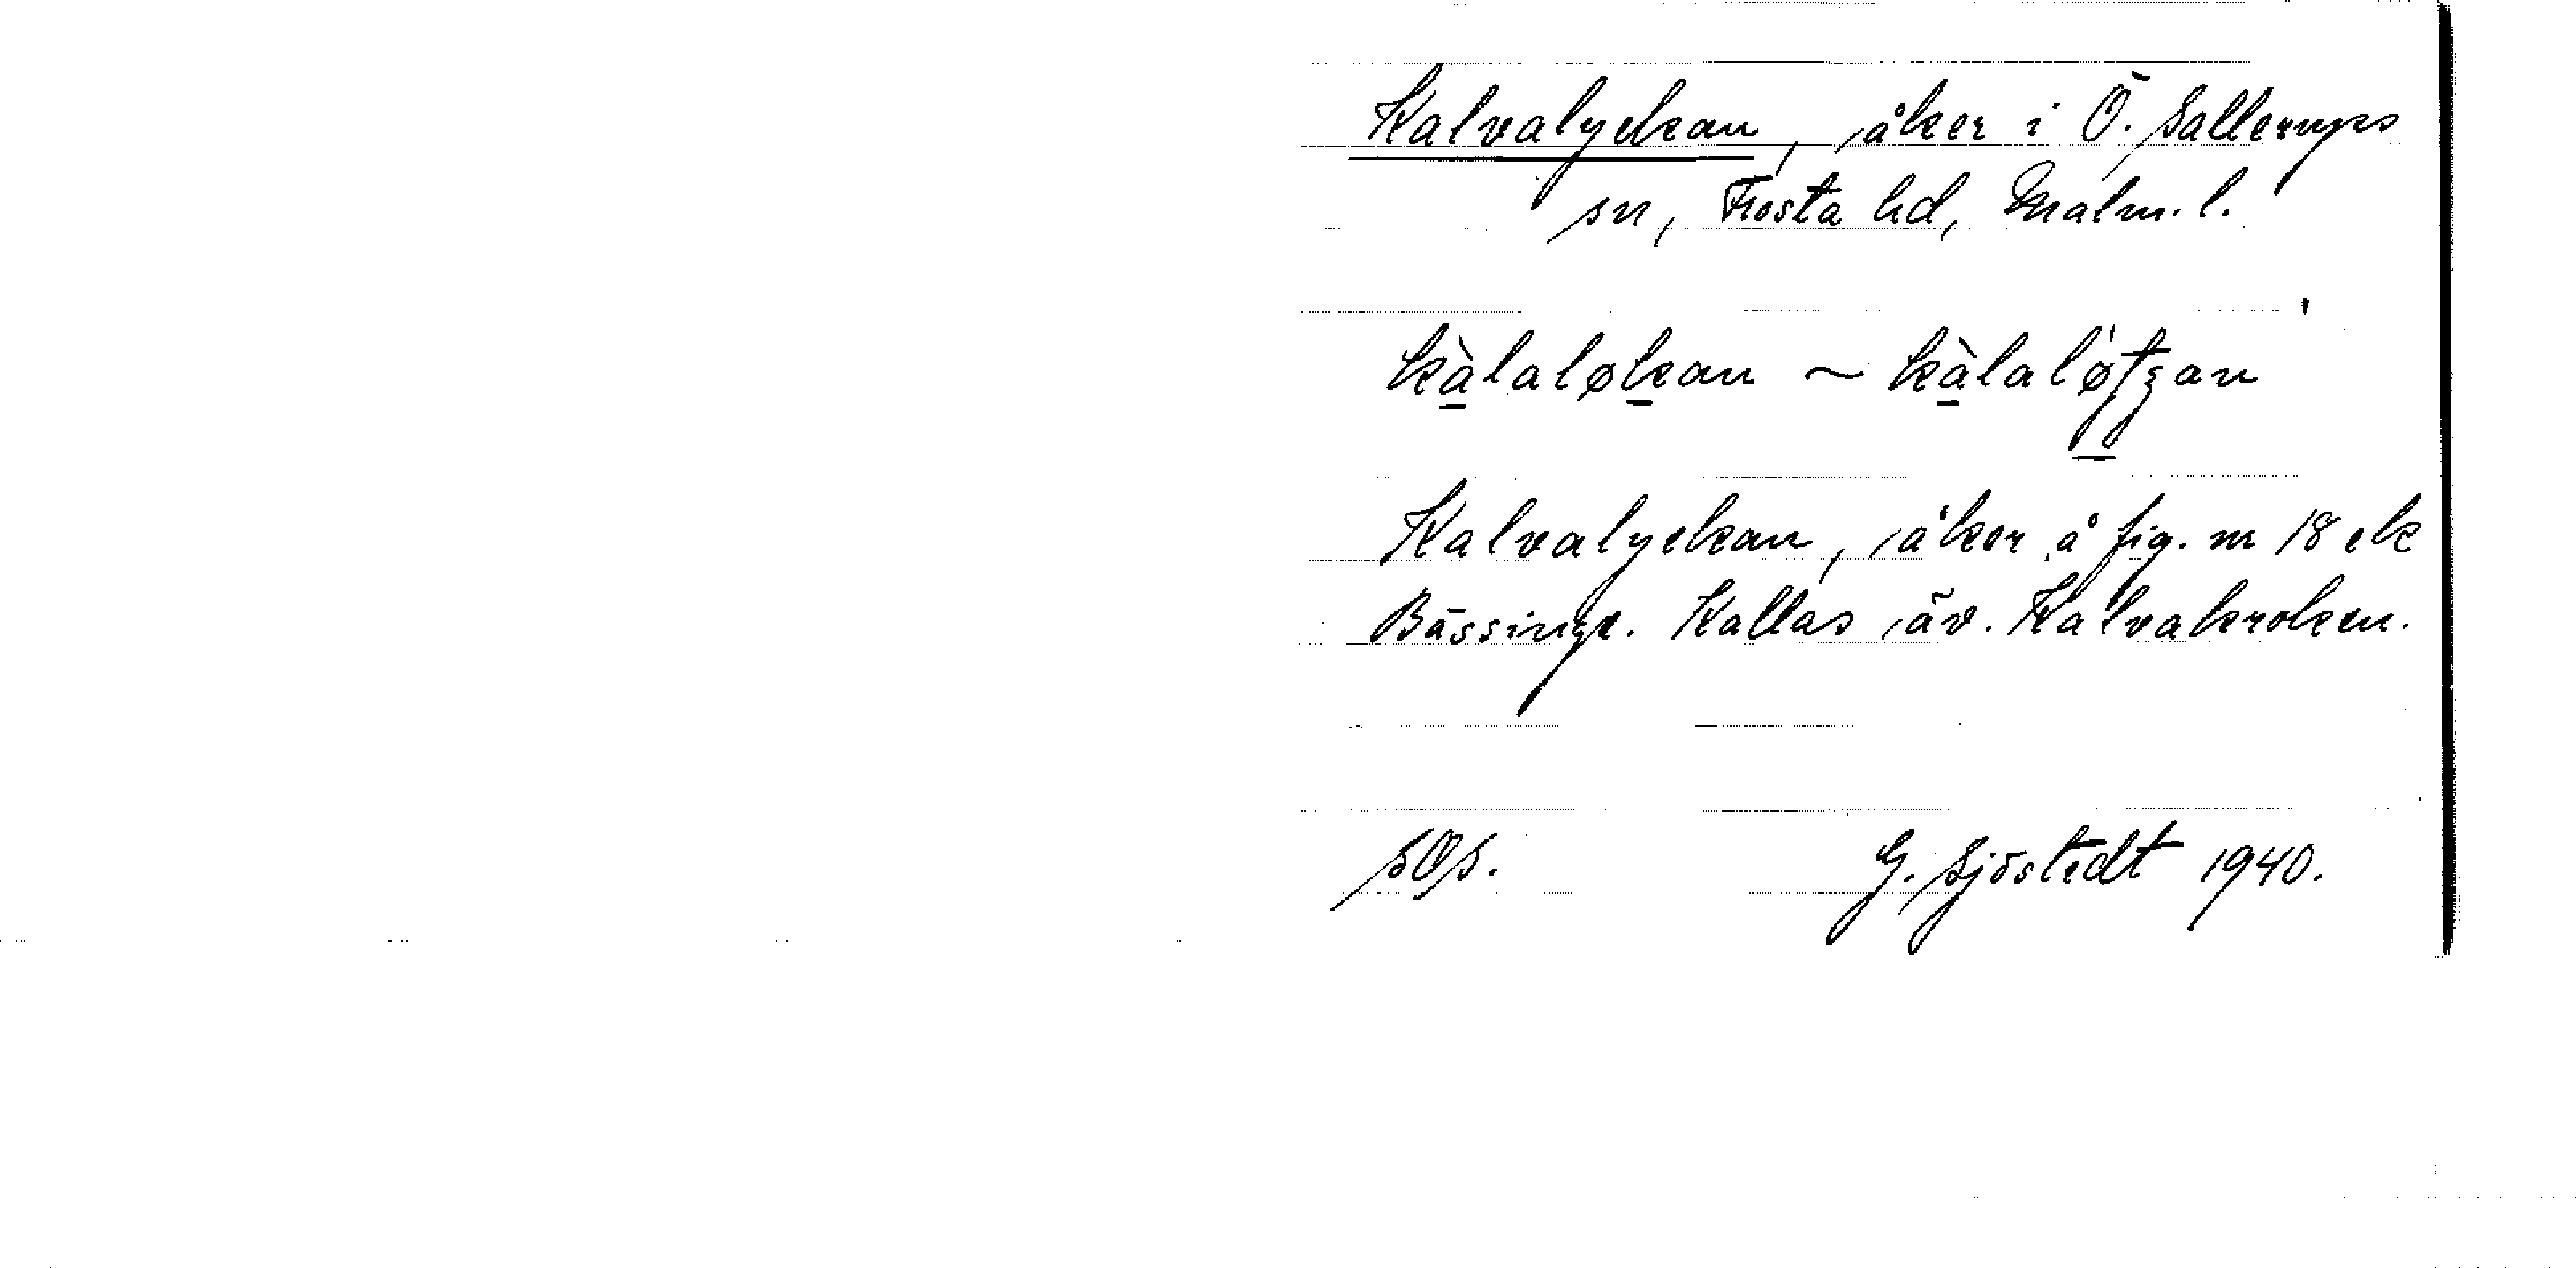 Kalvalyckan, åker i Ö. Sallerups
sn, Frosta hd, Malm. l.
kàlaløkan ~ kàlal
Kalvalyckan, åker å fig. nr 18 ek
Bässinge. Kallas äv. Kalvakroken.
SOS. G. Sjöstedt 1940.